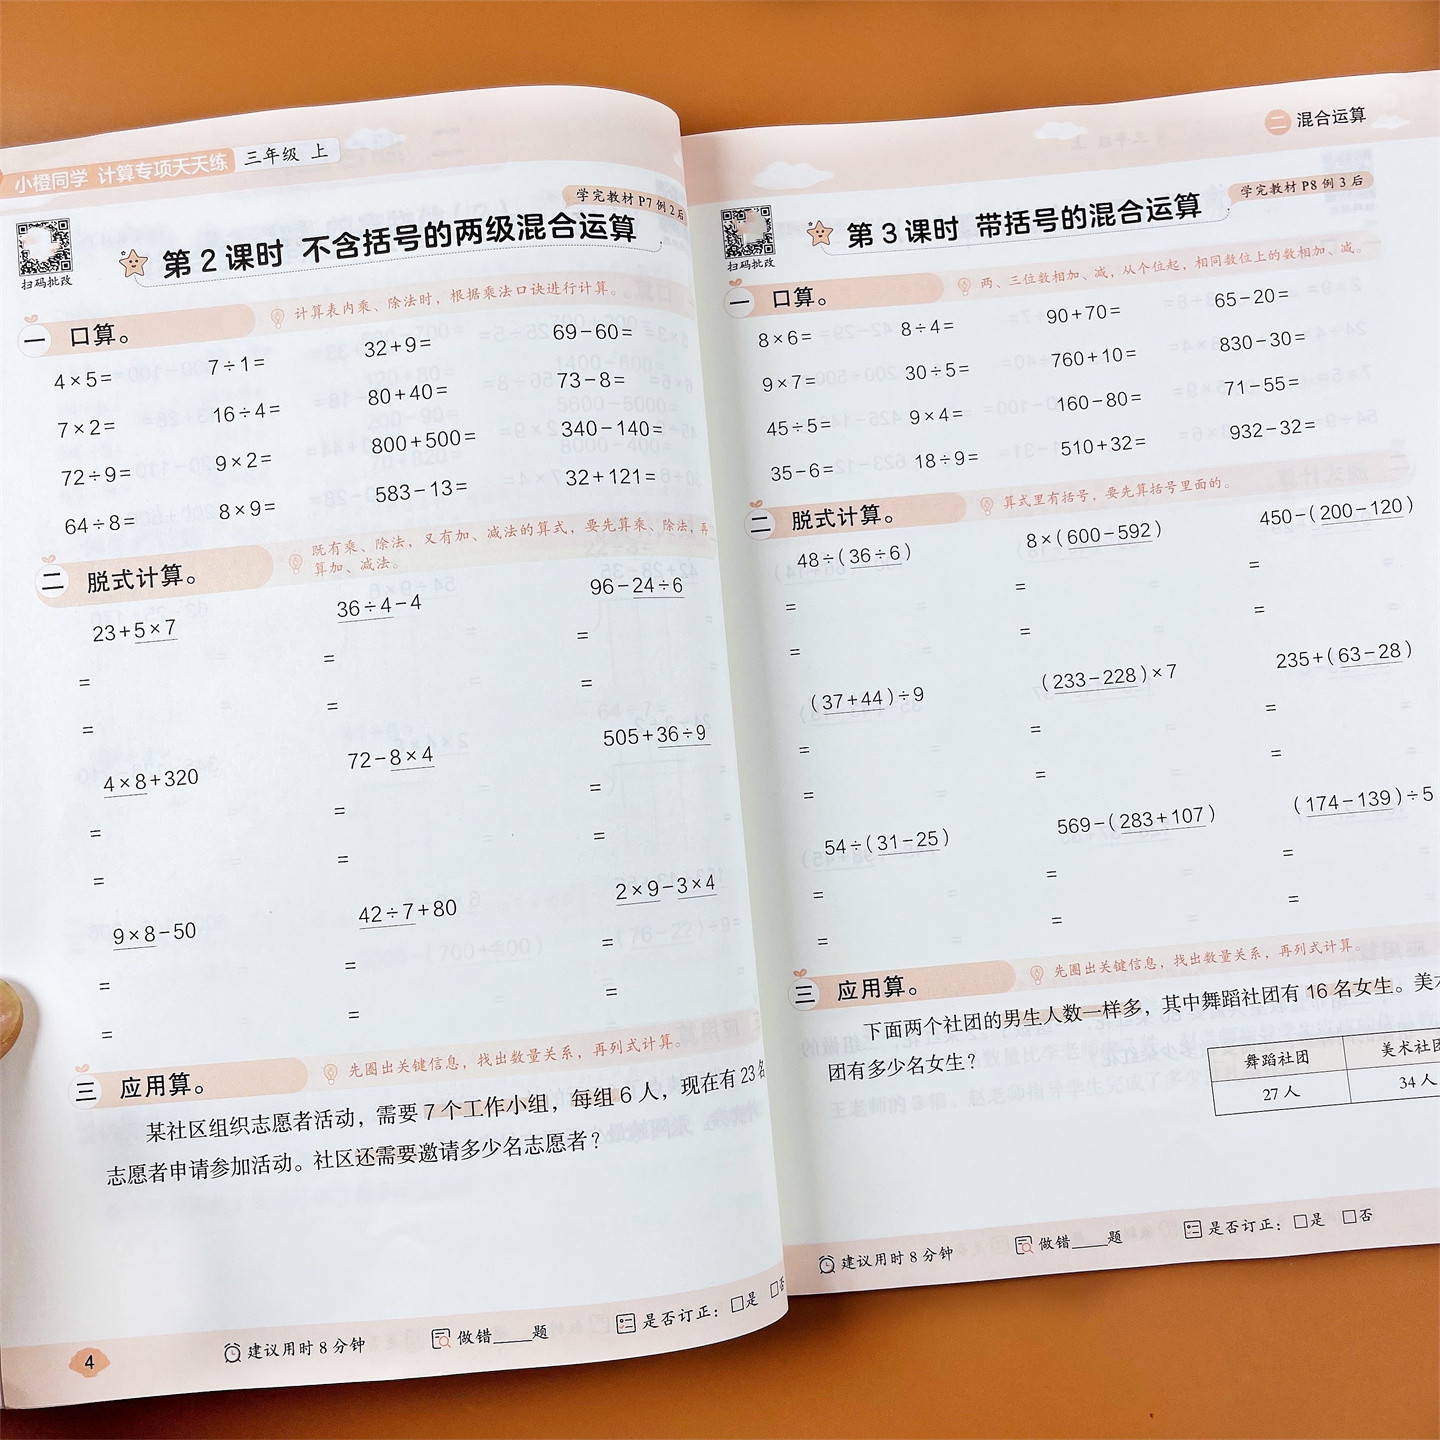 小橙同学 计算专项天天练 三年级 上
学完教材 P7 例 2 后
扫码批改
第 2 课时 不含括号的两级混合运算
一 口算。
计算表内乘、除法时，根据乘法口诀进行计算。
4×5= 7÷1= 32+9= 69−60=
7×2= 16÷4= 80+40= 73−8=
72÷9= 9×2= 800+500= 340−140=
64÷8= 8×9= 583−13= 32+121=
二 脱式计算。
既有乘、除法，又有加、减法的算式，要先算乘、除法，再
算加、减法。
23+5×7 36÷4−4 96−24÷6
= = =
= = =
4×8+320 72−8×4 505+36÷9
= = =
= = =
9×8−50 42÷7+80 2×9−3×4
= = =
= = =
三 应用算。
先圈出关键信息，找出数量关系，再列式计算。
某社区组织志愿者活动，需要 7 个工作小组，每组 6 人，现在有 23 名
志愿者申请参加活动。社区还需要邀请多少名志愿者？
4
建议用时 8 分钟 做错____题 是否订正：□是 □否
二 混合运算
学完教材 P8 例 3 后
扫码批改
第 3 课时 带括号的混合运算
一 口算。
两、三位数相加、减，从个位起，相同数位上的数相加、减。
8×6= 8÷4= 90+70= 65−20=
9×7= 30÷5= 760+10= 830−30=
45÷5= 9×4= 160−80= 71−55=
35−6= 18÷9= 510+32= 932−32=
二 脱式计算。
算式里有括号，要先算括号里面的。
48÷(36÷6) 8×(600−592) 450−(200−120)
= = =
= = =
(37+44)÷9 (233−228)×7 235+(63−28)
= = =
= = =
54÷(31−25) 569−(283+107) (174−139)÷5
= = =
= = =
三 应用算。
先圈出关键信息，找出数量关系，再列式计算。
下面两个社团的男生人数一样多，其中舞蹈社团有 16 名女生。美术
团有多少名女生？
舞蹈社团 美术社团
27 人 34 人
建议用时 8 分钟 做错____题 是否订正：□是 □否